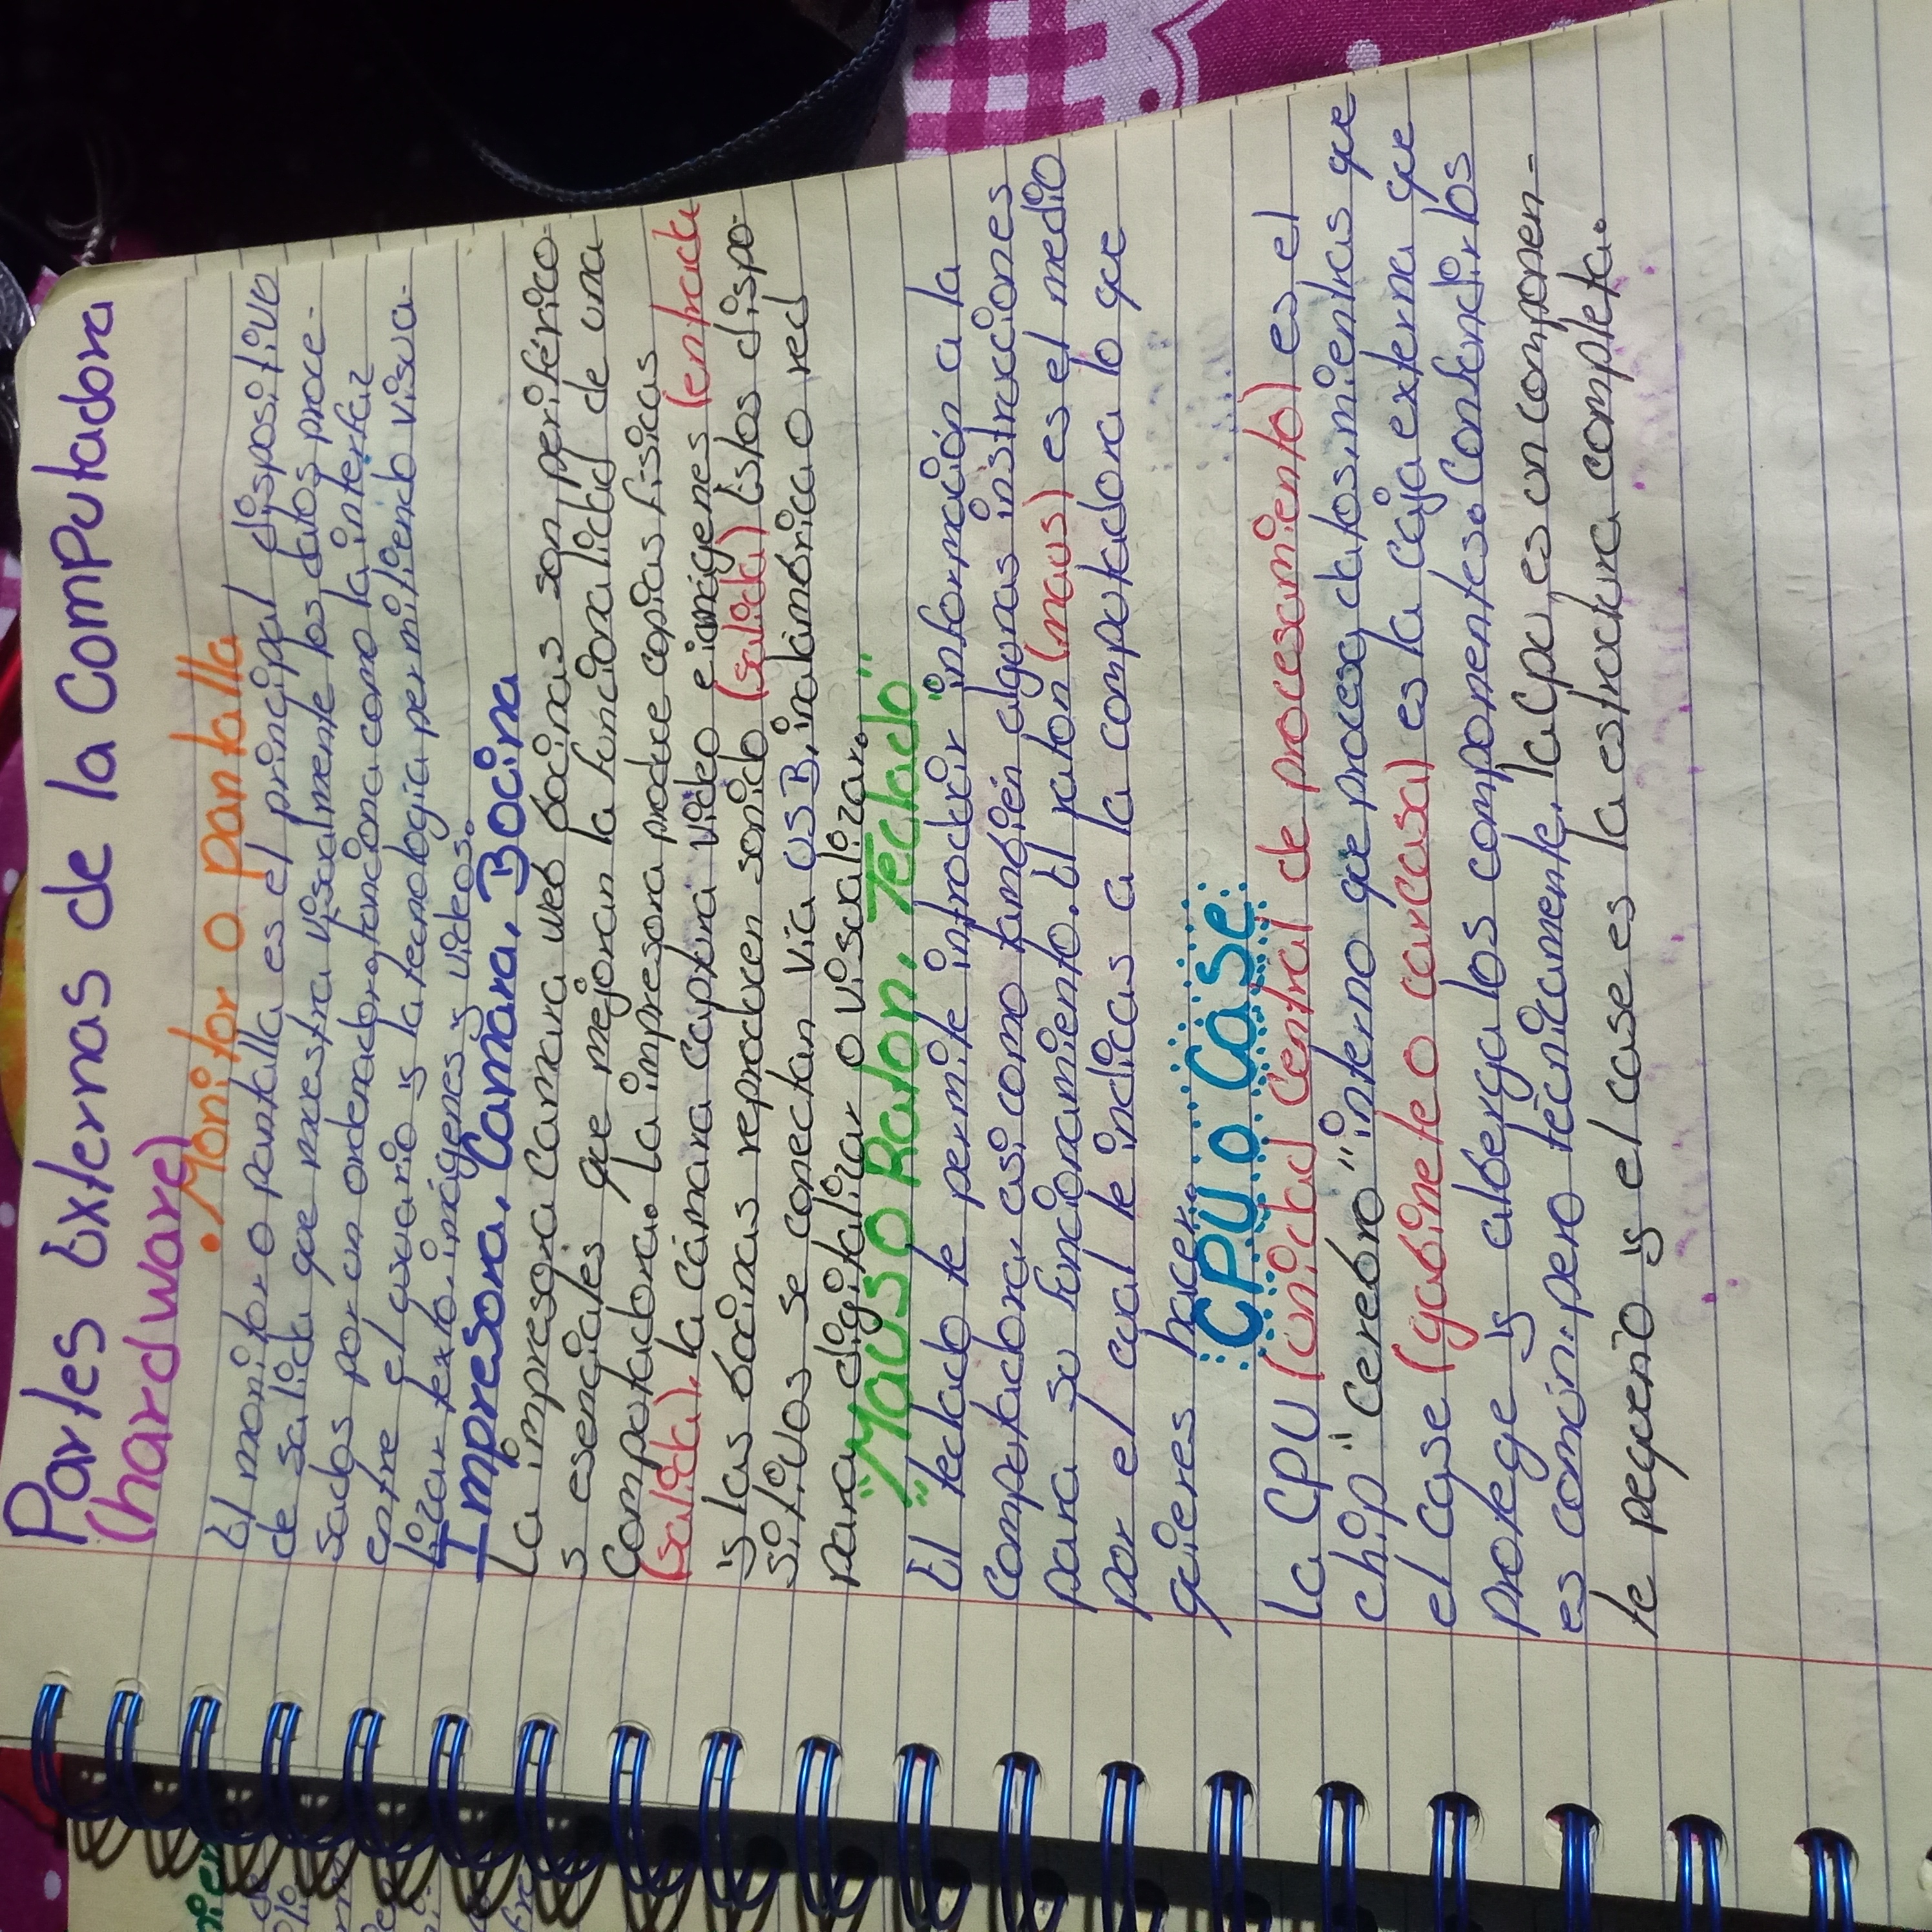 Partes Externas de la Computadora
(hardware)
• Monitor o pantalla
El monitor o pantalla es el principal dispositivo
de salida que muestra visualmente los datos proce-
sados por un ordenador, funciona como la interfaz
entre el usuario y la tecnología permitiendo visua-
lizar texto, imágenes y videos.
Impresora, Camara, Bocina
La impresora Camara web bocinas son periférico-
s esenciales que mejoran la funcionalidad de una
Computadora. La impresora produce copias físicas
(salida), la cámara captura video e imágenes (entrada
y las bocinas reproducen sonido (salida) Estos dispo-
sitivos se conectan vía USB, inalámbrica o red
para digitalizar o visualizar.
"Maus o Raton, Teclado"
El teclado te permite introducir información a la
Computadora asi como también algunas instrucciones
para su funcionamiento. El ratón (maus) es el medio
por el cual le indicas a la computadora lo que
quieres hacer.
CPU o Case
La CPU (unidad central de procesamiento) es el
chip "Cerebro" interno que procesa datos, mientras que
el case (gabinete o carcasa) es la caja externa que
protege y alberga los componentes. Confundirlos
es común, pero técnicamente, la cpu es un componen-
te pequeño y el case es la estructura completa.